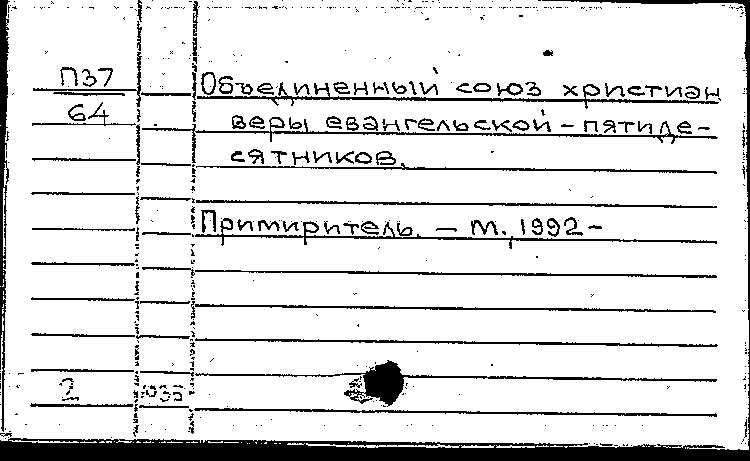 П37
64
Объединенный союз христиан
веры евангельской - пятиде-
сятников.
Примиритель. — М., 1992-
2